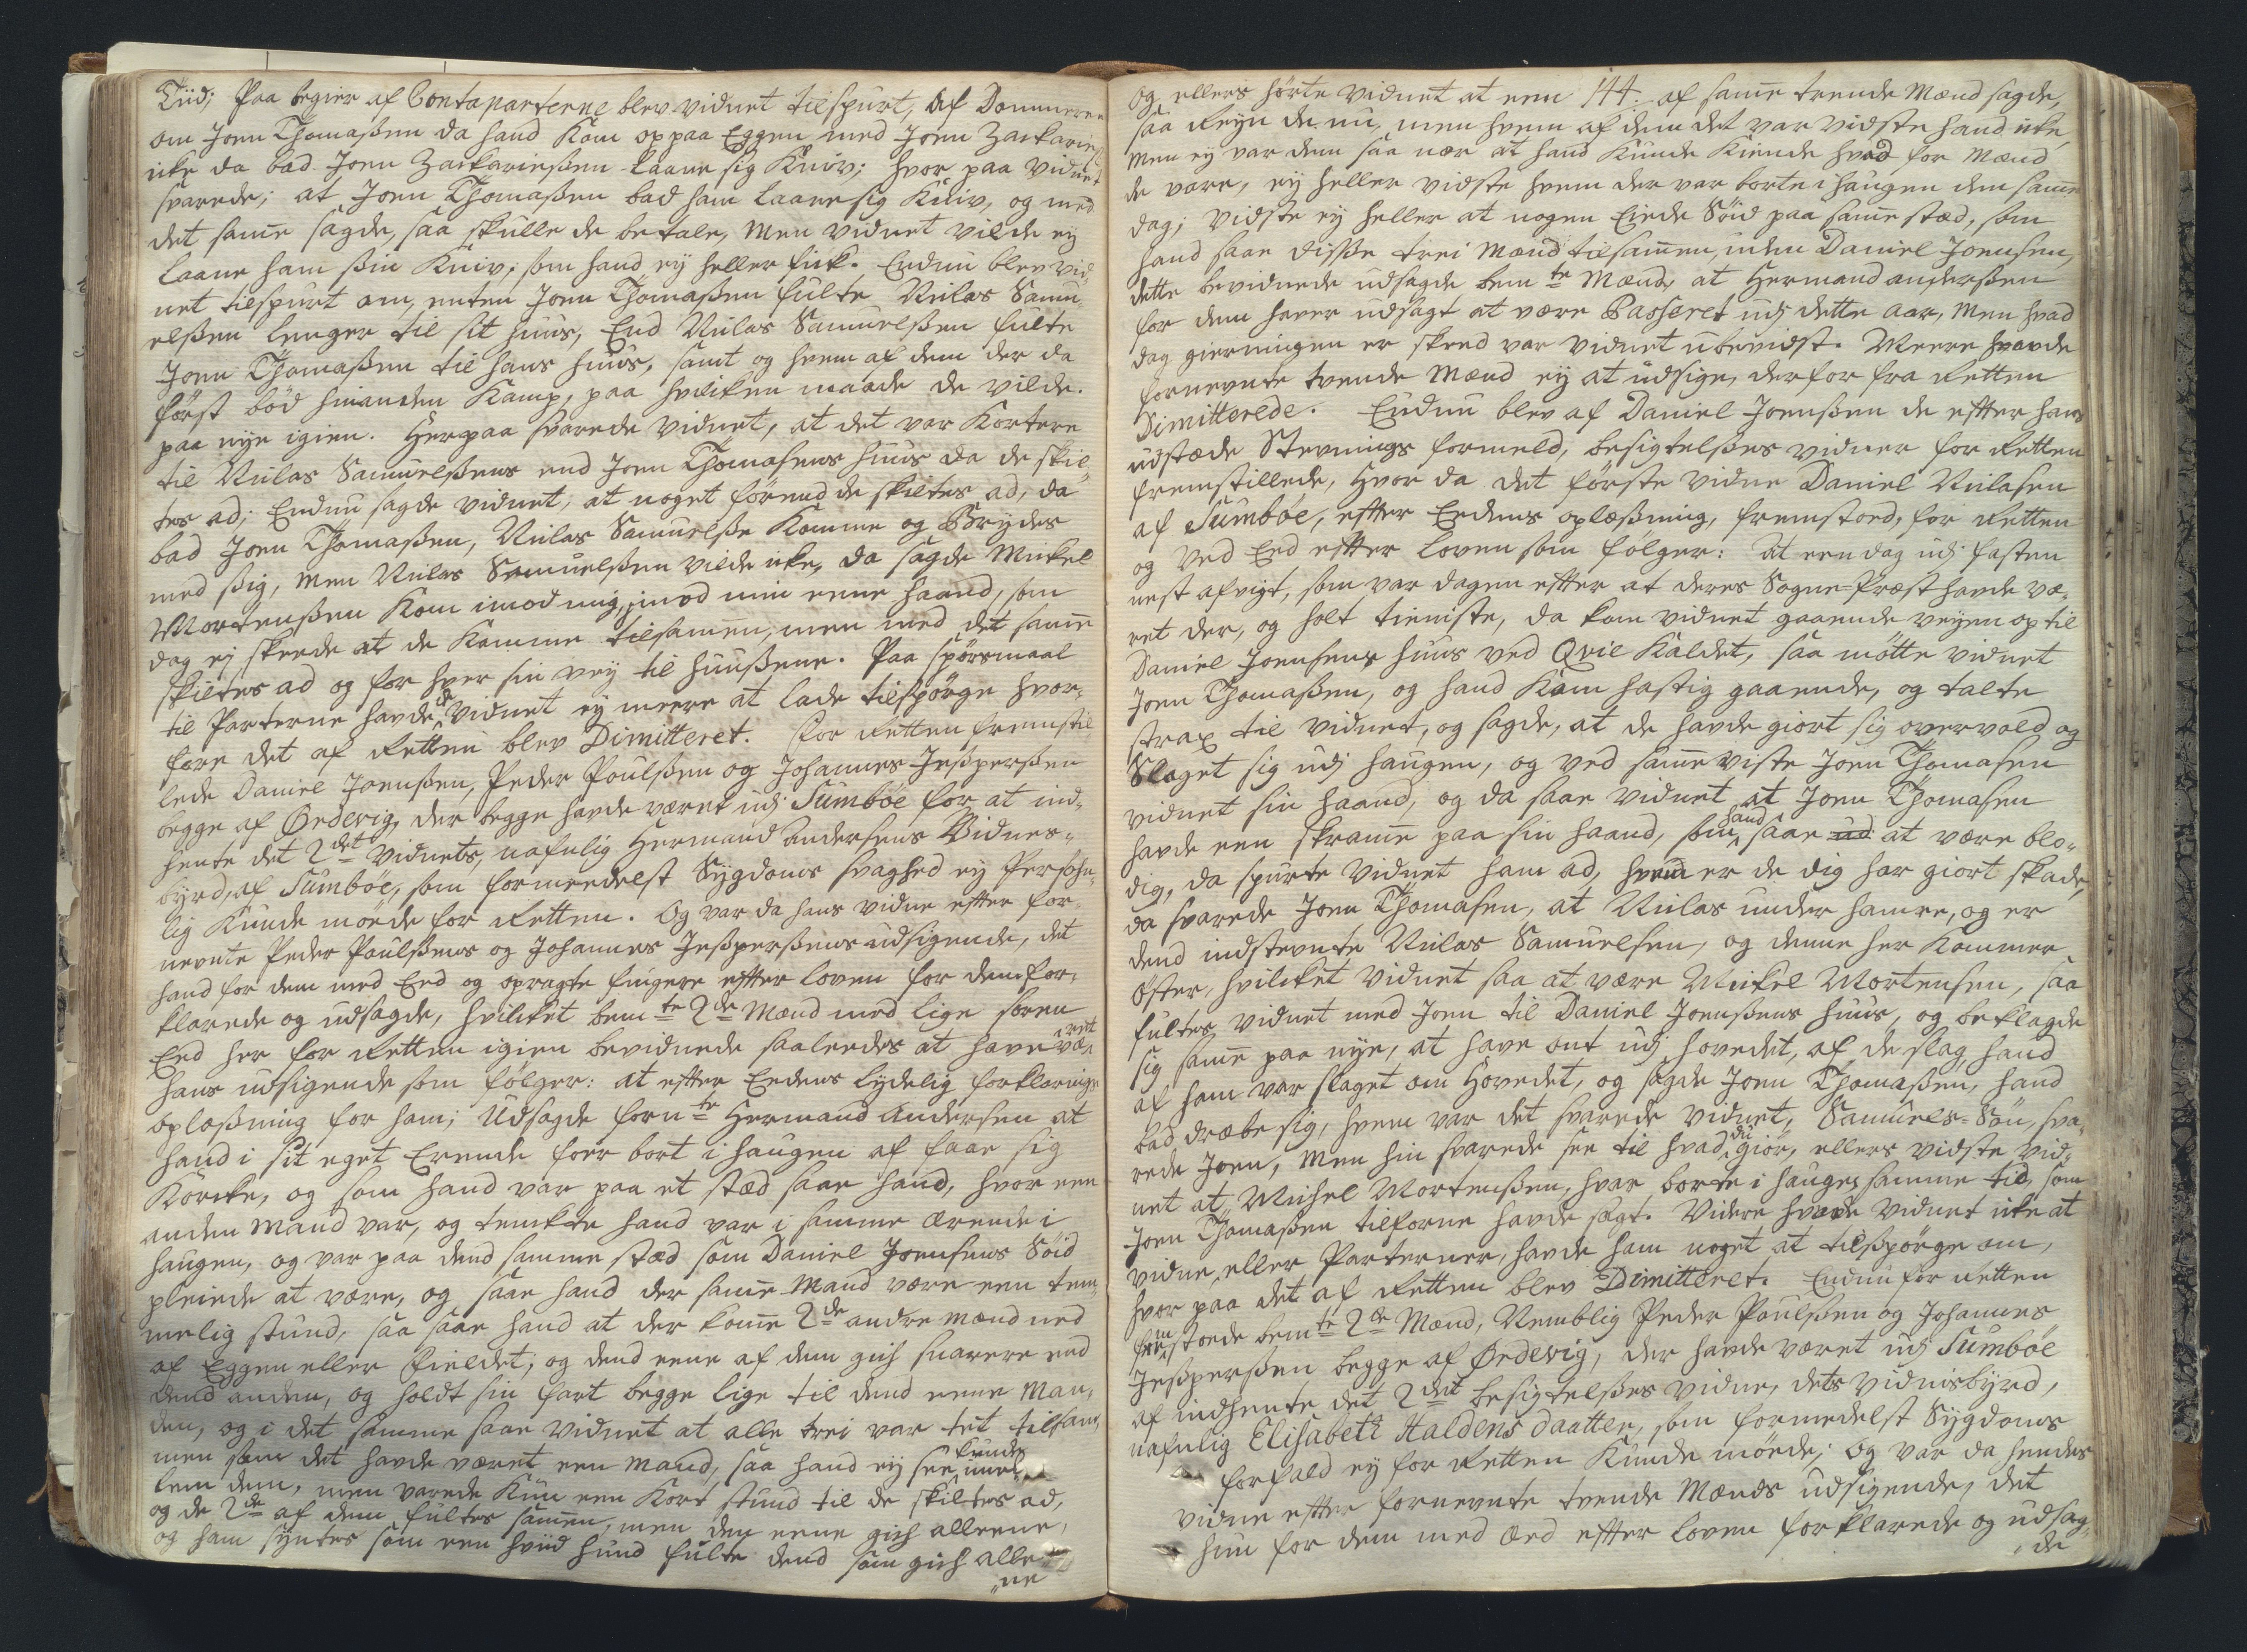 Tiid; Paa begier af Contraparterne blev vidnet tilspurt, Af Dommeren
om Joen Thomaßen da hand Kom op paa Eggen med Joen Zackarieß:
icke da bad Joen Zackarießen laane sig Kniv; hvor paa vidnet
svarede; at Joen Thomaßen bad ham laane sig Kniv, og med
det same sagde, saa skulle de betale, Men vidnet vilde ey
laane ham ßin Kniv, som hand ey heller fick. Endnu blev vid-
net tilspurt om, enten Joen Thomaßen fulte Niclas Samu-
elßen lenger til sit huus, End Niclas Samuelßen fulte
Joen Thomaßen til hans huus, samt og hvem af dem der da
først bød hinanden Kamp, paa hvilcken maade de vilde.
paa nye igien. Herpaa svarede vidnet, at det var Kortere
til Niclas Samuelßens end Joen Thomasens huus da de skil-
tes ad; Endnu sagde vidnet, at noget førend de skiltes ad, da
bad Joen Thomaßen, Niclas Samuelße Komme og Brydes
med ßig, Men Niclas Samuelßen vilde icke, da sagde Mickel
Mortenßen Kom imod mig, imod min eene haand, som
dog ej skeede at de Komme tilsamen, men med det same
skiltes ad og foer hver sin vey til huußene. Paa spørsmaal
til Parterne havde de vidnet ey meere at lade tilspørge hvor-
fore det af Retten blev Dimitteret. For Retten fremstil-
lede Daniel Joenßen, Peder Poulßen og Johannes Jeßperßen
begge af Ordevig, der begge havde været udj Sumbøe for at ind-
hente det 2det vidnets, nafnlig Hermand andersens Vidnes-
byrd, af Sumbøe, som formedelst Sygdoms svaghed ey Persohn-
lig Kunde møede for Retten. Og var da hans vidne efter for-
nevnte Peder Poulßens og Johannes Jeßperßens udsigende, det
hand for dem med Eed og opragte fingere efter loven for dem for-
klarede og udsagde, hvilcket bemte 2de Mænd med lige soren
Eed her for Retten igien bevidnede saaleedes at have været
hans udsigende som følger: at efter Eedens lydelig forklarings
oplæßning for ham; Udsagde fornte Hermand Andersen at
hand i sit eget Erende foer bort i haugen af faae sig
Korcke, og som hand var paa et stæd saae hand, hvor een
anden Mand var, og tenckte hand var i samme ærende i
haugen, og var paa dend samme stæd som Daniel Joensens Søid
pleiede at være, og saae hand der same Mand være een tem-
melig stund, saa saae hand at der kome 2de andre mænd ned
af Eggen eller Fieldet; og dend eene af dem gich snarere end
dend anden, og holdt sin fart begge lige til dend eene Man-
den, og i det samme saae vidnet at alle trei var tet tilsam-
men som det havde været een mand, saa hand ey kunde see imel-
lem dem, men varede Kun een Kort stund til de skiltes ad,
og de 2de af dem fultes sammen, men den eene gich alleene,
og ham syntes som een hviid hund fulte dend som gich alle-
„ne
144.
og ellers hørte vidnet at een af same trende Mænd sagde,
saa Reyn de nu, men hvem af dem det var vidste hand icke,
men ey var dem saa nær at hand Kunde Kiende hvad for Mænd
de vare, ey heller vidste hvem der var borte i haugen dem same
dag; vidste ey heller at nogen Eiede Søid paa same stæd, som
hand saae disse trei Mænd tilsamen, uden Daniel Joensen,
dette bevidnede udsagde bemte Mænd at Hermand anderßen
for dem haver udsagt at være Passeret udj dette aar, men hvad
dag gierningen er skeed var vidnet ubevidst. Meere havde
fornevnte tvende Mænd ey at udsige, derfor fra Retten
Dimitterede. Endnu blev af Daniel Joenßen de efter hans
udstæde Stevnings formeld, besigtelßes vidner for Retten
fremstillede, hvor da det første vidne Daniel Niclasen
af Sumbøe, efter Eedens oplæßning, fremstoed, for Retten
og ved Eed efter loven som følger: At een dag udj fasten
nest afvigt, som var dagen efter at deres Sogne-Præst havde væ-
ret der, og holt tieniste, da kom vidnet gaaende veyen op til
Daniel Joensens huus ved Qvie Kaldet, saa møtte vidnet
Joen Thomaßen, og hand Kom hastig gaaende, og talte
strax til vidnet, og sagde, at de havde giort sig overvold og
Slaget sig udj haugen, og ved same viste Joen Thomasen
vidnet sin haand, og da saae vidnet at Joen Thomasen
havde een skrame paa sin haand, som hand saae at være blo-
dig, da spurte vidnet ham ad, hvem er de dig har giort skade,
da svarede Joen Thomasen, at Niclas under hamre, og er
dend indstevnte Niclas Samuelsen, og denne her Kommer
øster, hvilcket vidnet saa at være Mickel Mortensen, saa
fultes vidnet med Joen til Daniel Joenßens huus, og beklagde
sig same paa nye, at have ont udj hovedet, af de slag hand
af ham var slaget om Hovedet, og sagde Joen Thomaßen, hand
bad dræbe sig, hvem var det svarede vidnet, Samuels-Søn, sva-
rede Joen, Men hin svarede see til hvad du giør, ellers vidste vid-
net at Michel Mortenßen, hvar borte i hauges samme tid, som
Joen Thomaßen tilforne havde sagt. Videre hvede vidnet icke at
vidne, eller Parterner, havde ham noget at tilßpørge om,
hvor paa det af Retten blev Dimitteret. Endnu for Retten
fremstoede bemte 2de Mænd, Nemblig Peder Poulßen og Johannes
Jeßperßen begge af Ordevig, der havde været udj Sumbøe
af indhente det 2det besigtelßes vidne, dets vidnisbyrd,
nafnlig Elisabeth Haldens daatter, som formedelst Sygdoms
forfald ey for Retten Kunde møede; Og var da hendes
vidne efter fornevnte tvende Mænds udsigende, det
hun for dem med æed efter loven forklarede og udsag-
„de